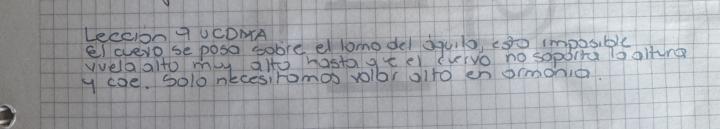 Leccion 9 UCDMA
el cuevo se posa sobre el lomo del águila, es imposible
vuela alto muy alto hasta que el cuervo no soporta la altura
y cae. Solo necesitamos volar alto en armonia.